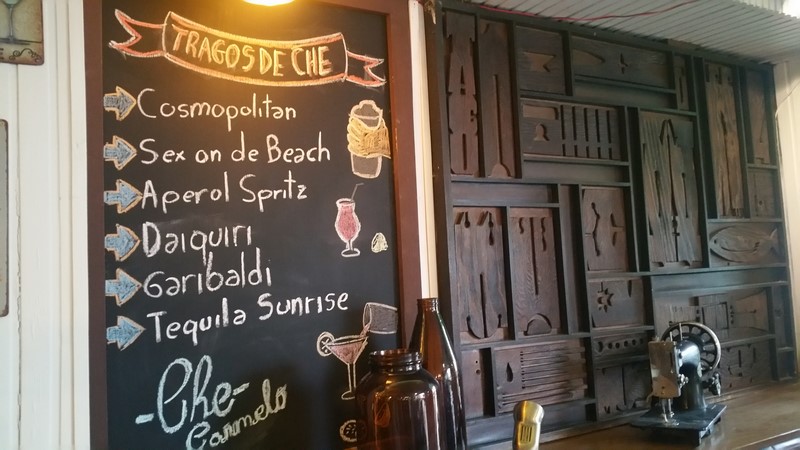 TRAGOS DE CHE
Cosmopolitan
Sex on de Beach
Aperol Spritz
Daiquiri
Garibaldi
Tequila Sunrise
-Che-
Carmelo